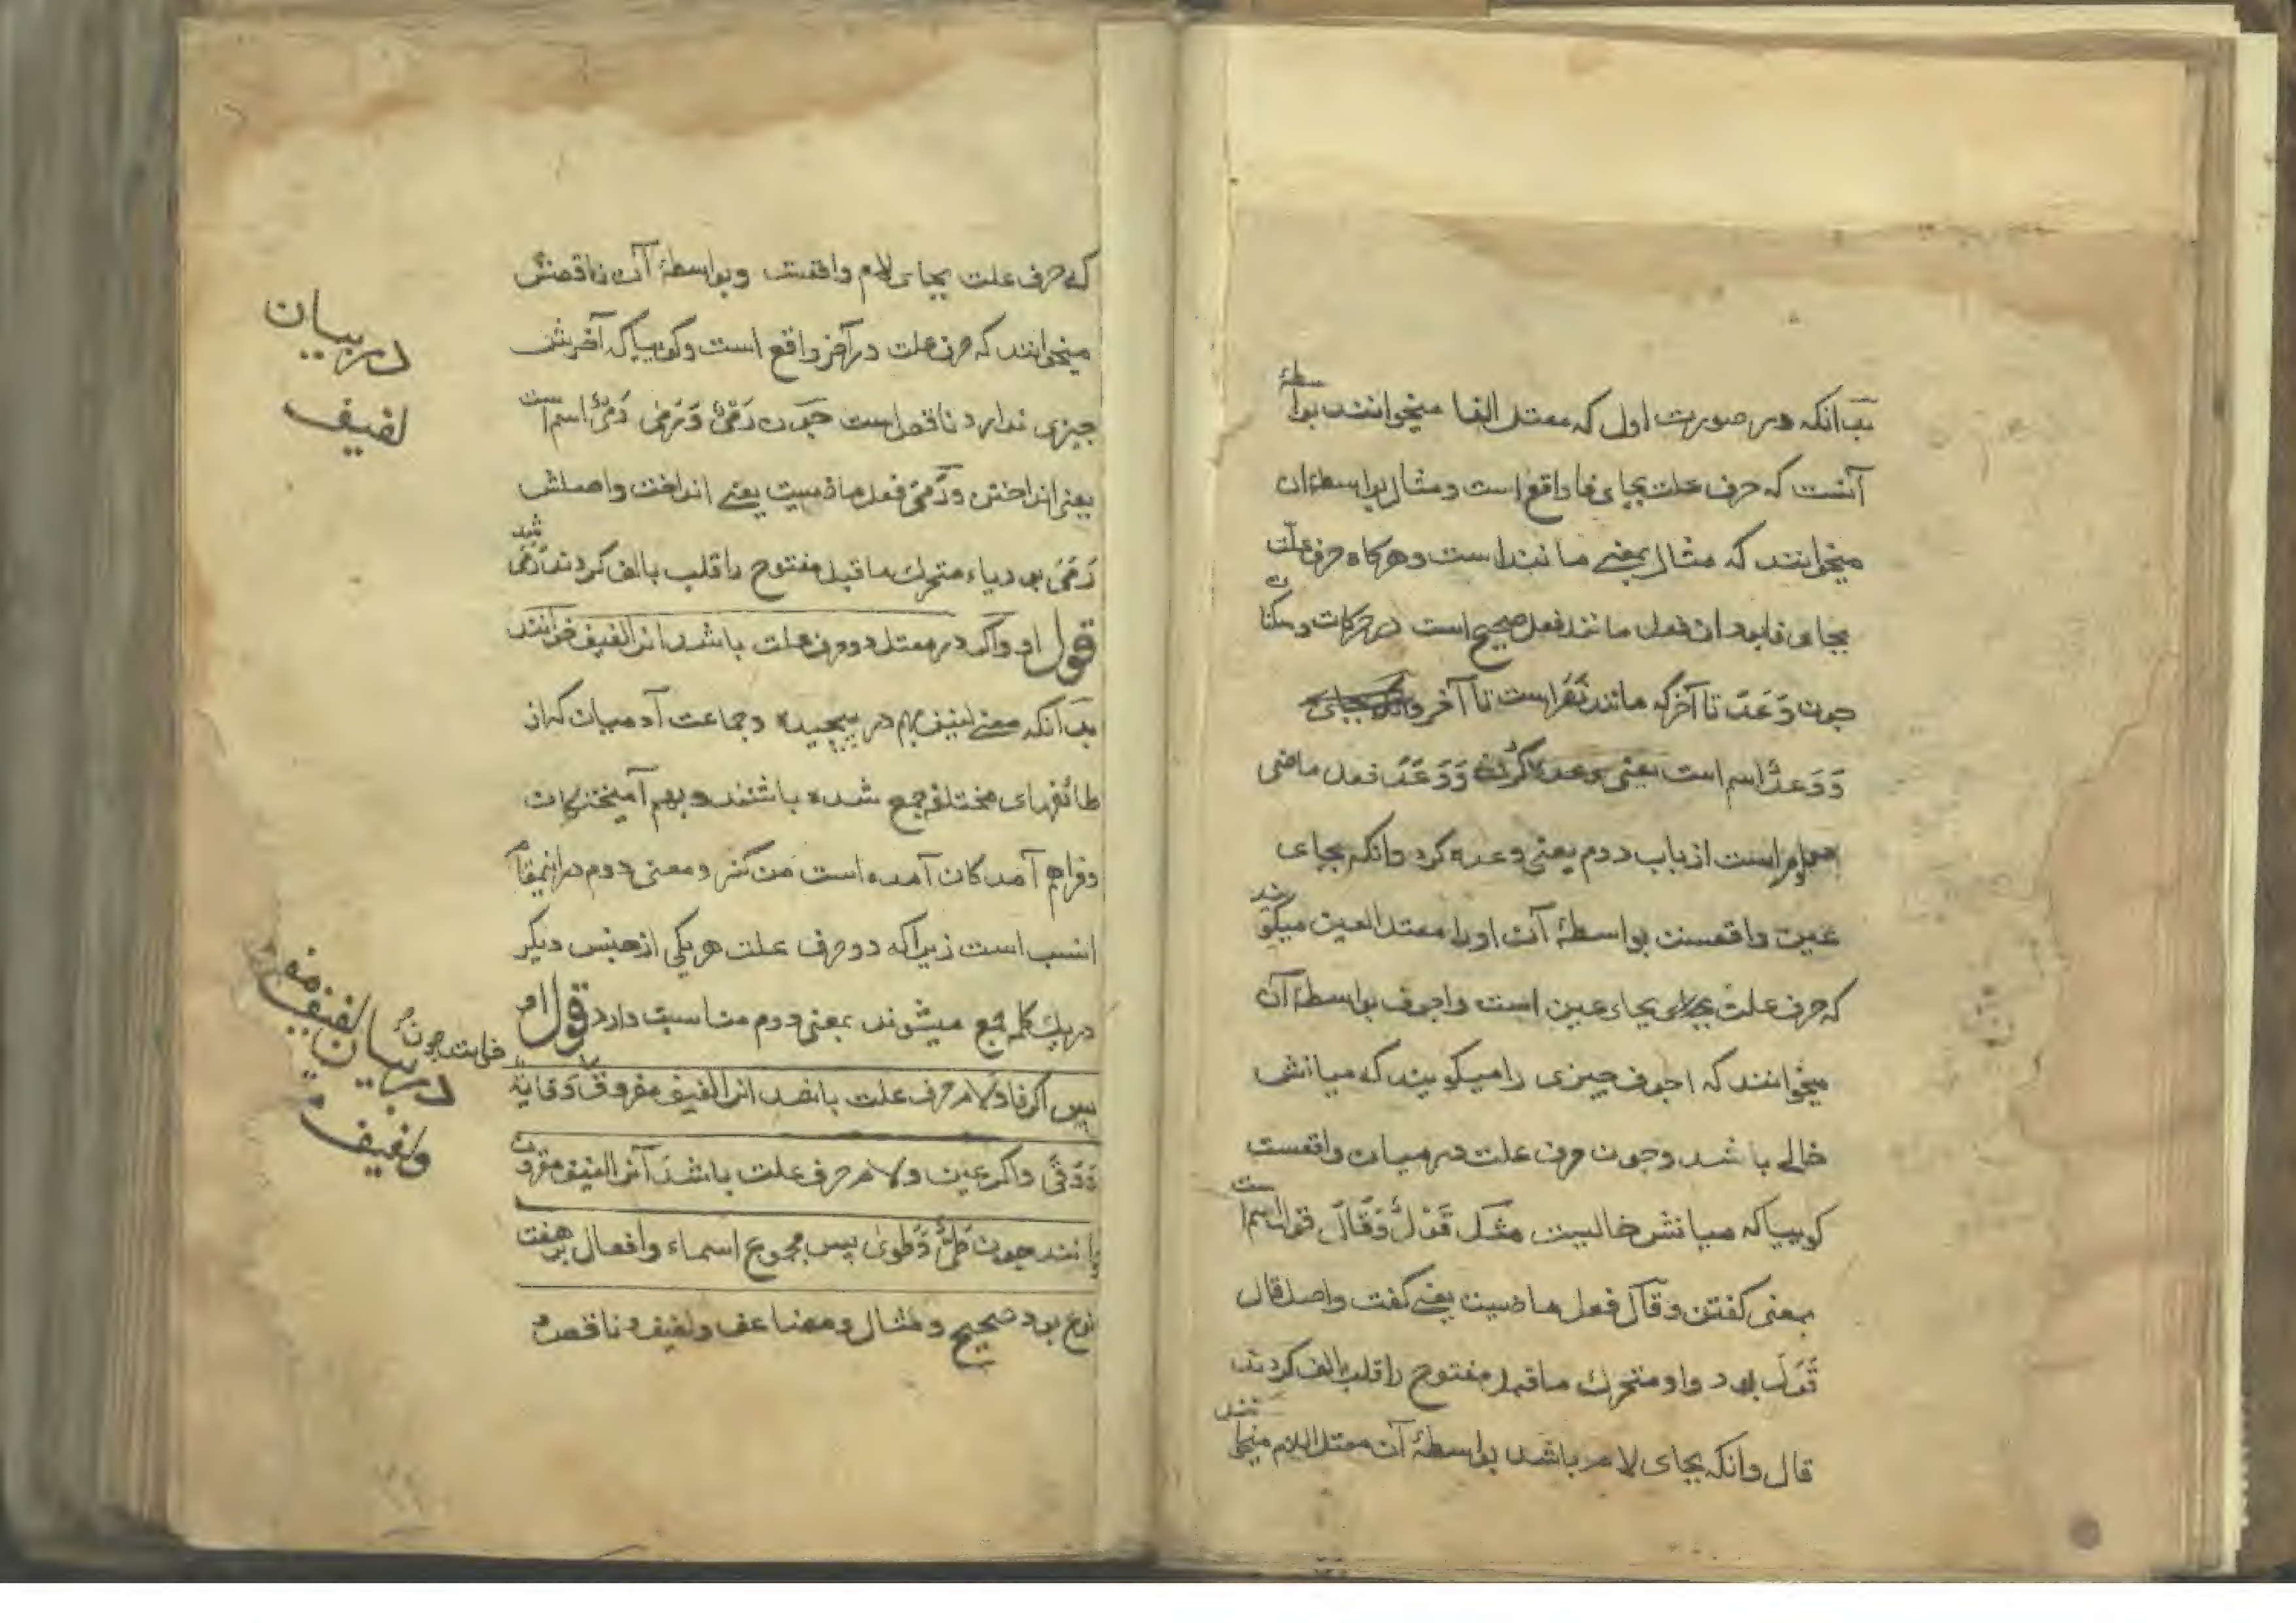 بدانکه در صورت اول که معتل الفا میخوانند بواسطهٔ
آنست که حرف علت بجای فا واقع است و مثال بواسطهٔ ان
میخوانند که مثال بمعنی مانند است و هرکاه حرف علت
بجای فا بود ان فعل مانند فعل صحیح است در حرکات و سکنات
جون وَعَدَ تا آخر که مانند نَصَرَ است تا آخر
وَوَعدٌ اسم است یعنی وعده کردن وَوَعَدَ فعل ماضی
است از باب دوم یعنی وعده کرد وانکه بجای
عین واقعست بواسطهٔ آن اورا معتل العین میکویند
که حرف علت بجای عین است واجوف بواسطهٔ آن
میخوانند که اجوف جیزی را میکویند که میانش
خالی باشد وجون حرف علت در میان واقعست
کوییا که میانش خالیست مثل قَوْلٌ وَقَالَ قول اسم است
بمعنی کفتن وقَالَ فعل ماضیست یعنی کفت واصل قال
قَوَلَ بود واو متحرک ماقبل مفتوح را قلب بالف کردند
قال وانکه بجای لام باشد بواسطهٔ آن معتل اللام میخوانند
که حرف علت بجای لام واقعست وبواسطهٔ آن ناقصش
میخوانند که حرف علت در آخر واقع است وکوییا که آخرش
جیزی ندارد ناقص است جون رَمْیٌ وَرَمٰی رَمْیٌ اسم است
یعنی انداختن ورَمٰی فعل ماضیست یعنی انداخت واصلش
رَمَیَ بود یاء متحرک ماقبل مفتوح را قلب بالف کردند رَمٰی شد
قول او واکر در معتل دو حرف علت باشد انرا لفیف خوانند
بدانکه معنی لفیف بهم در پیچیده وجماعت آدمیان که از
طائفهای مختلف جمع شده باشند وبهم آمیختکان
وفراهم آمدکان آمده است من کنز ومعنی دوم درانمقام
انسب است زیرا که دو حرف علت هر یکی از جنس دیکر
در یک کلمه جمع میشوند بمعنی دوم مناسبت دارد قول او
پس اکر فا ولام حرف علت باشد انرا لفیف مفروق
وَوَقٰی واکر عین ولام حرف علت باشد آنرا لفیف مقرون
خوانند جون طَیٌّ وَطَوٰی پس مجموع اسماء وافعال بر هفت
نوع بود صحیح ومثال ومضاعف ولفیف وناقص و
در بیان
لفیف
در بیان لفیف
ولفیف